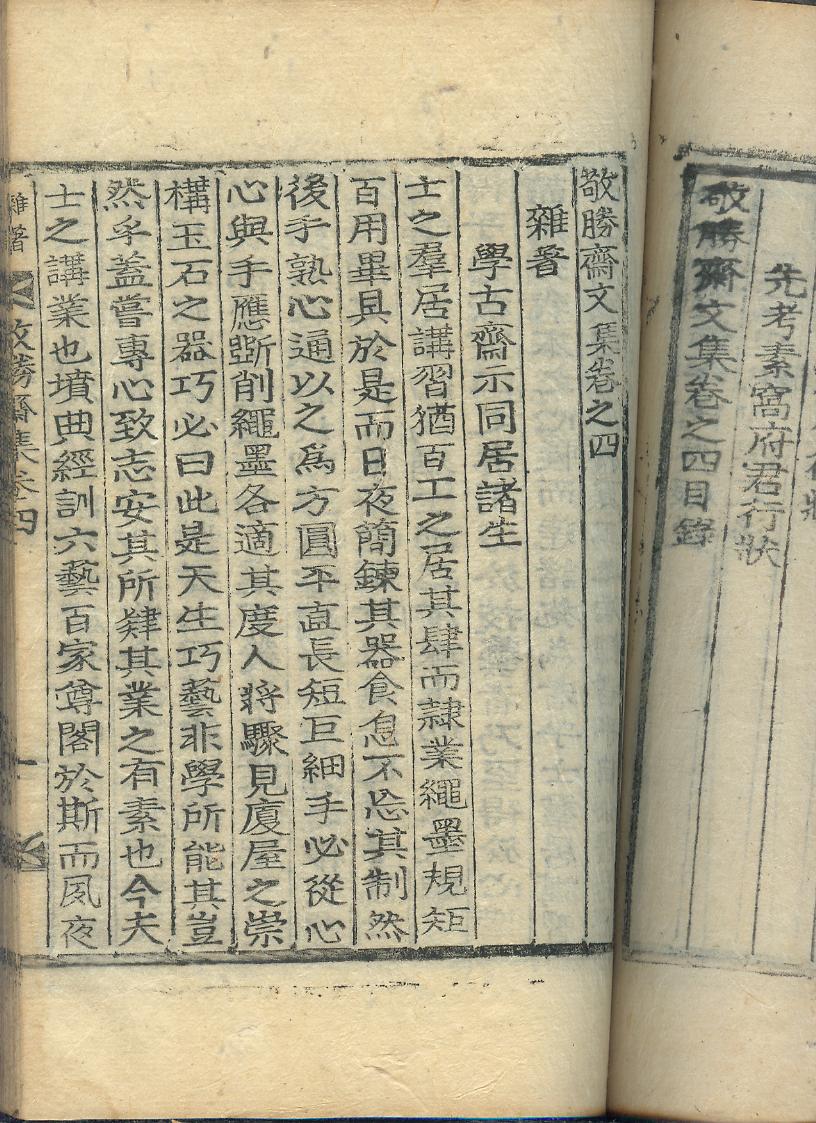 先考素窩府君行狀
敬勝齋文集卷之四目錄
敬勝齋文集卷之四
雜著
學古齋示同居諸生
士之羣居講習猶百工之居其肆而隷業繩墨規矩
百用畢具於是而日夜簡鍊其器食息不忘其制然
後手熟心通以之爲方圓平直長短巨細手必從心
心與手應斲削繩墨各適其度人將驟見廈屋之崇
構玉石之器巧必曰此是天生巧藝非學所能其豈
然乎蓋嘗專心致志安其所肄其業之有素也今夫
士之講業也墳典經訓六藝百家尊閣於斯而夙夜
雜著
敬勝齋集卷四
一